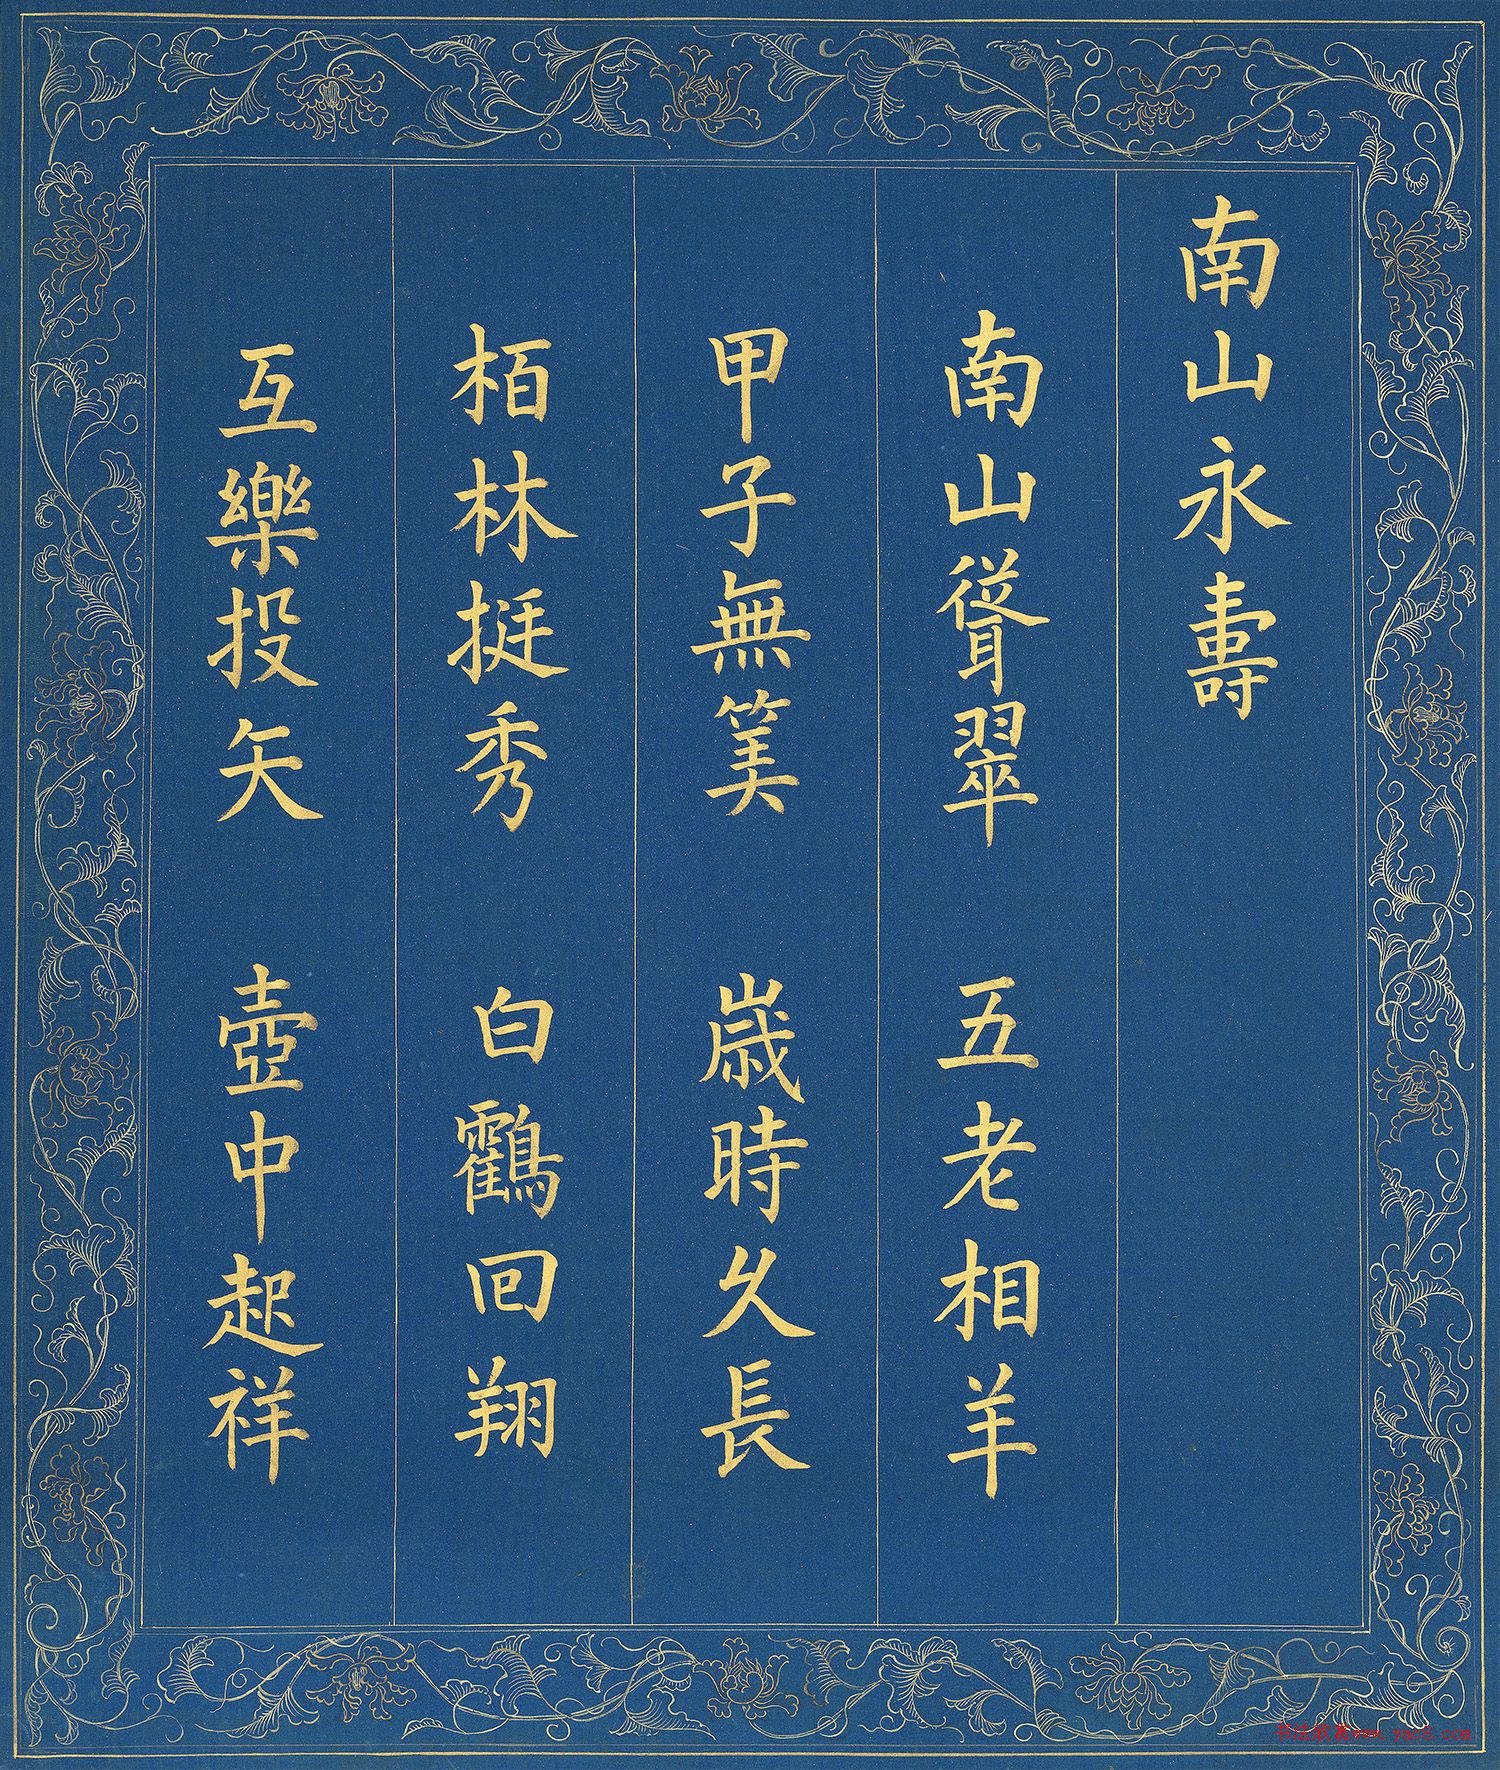 南山永壽
南山聳翠 五老相羊
甲子無筭 歲時久長
栢林挺秀 白鸖回翔
互樂投矢 壺中起祥